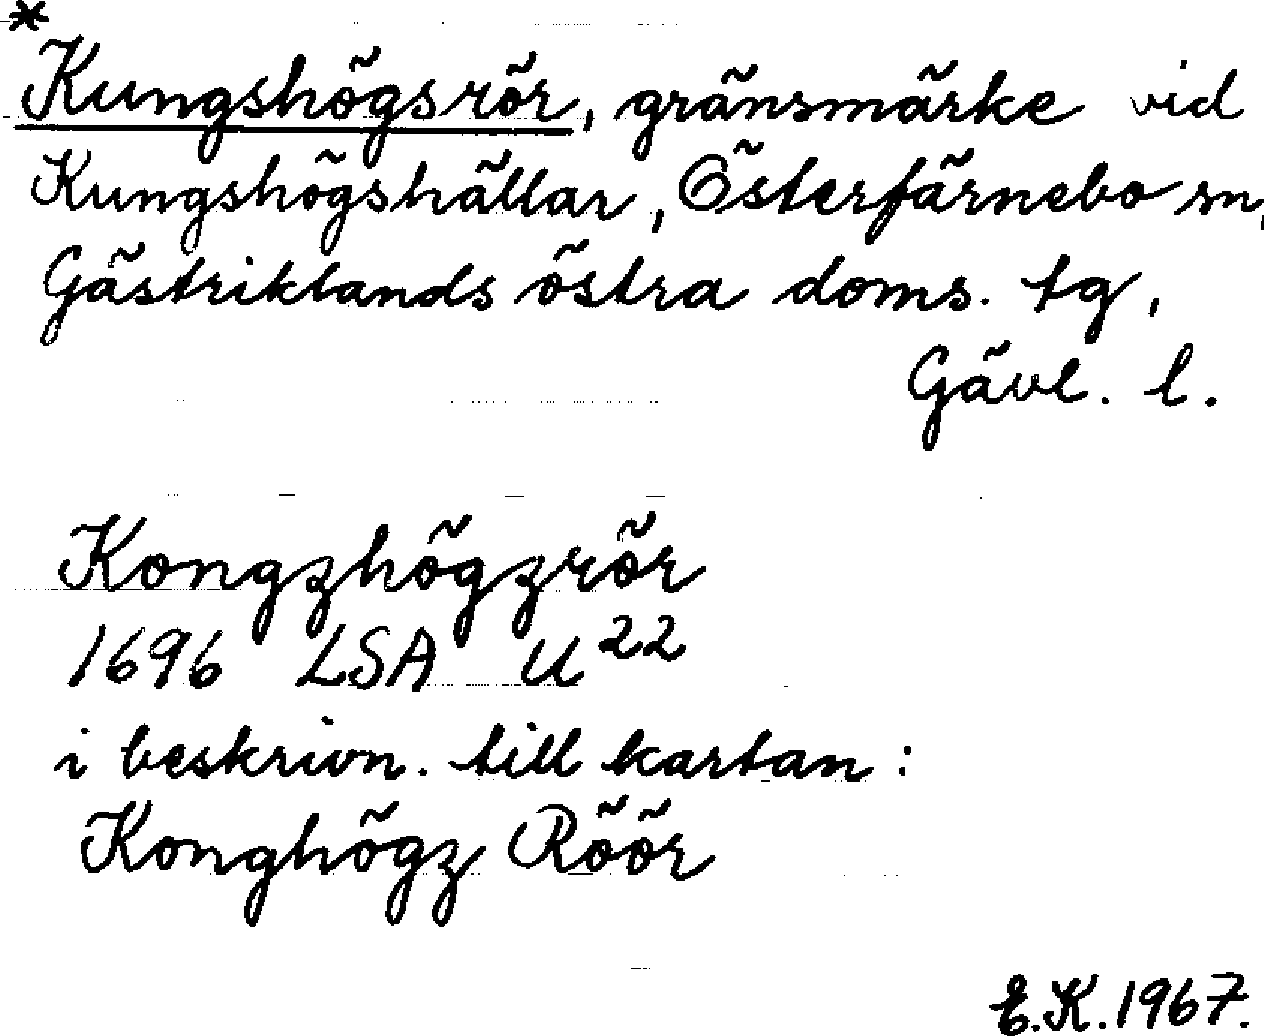 *
Kungshögsrör, gränsmärke vid
Kungshögshällar, Österfärnebo sn,
Gästriklands östra doms. tg,
Gävl. l.
Kongzhögzrör
1696 LSA U²²
i beskrivn. till kartan:
Konghögz Röör
E.K.1967.